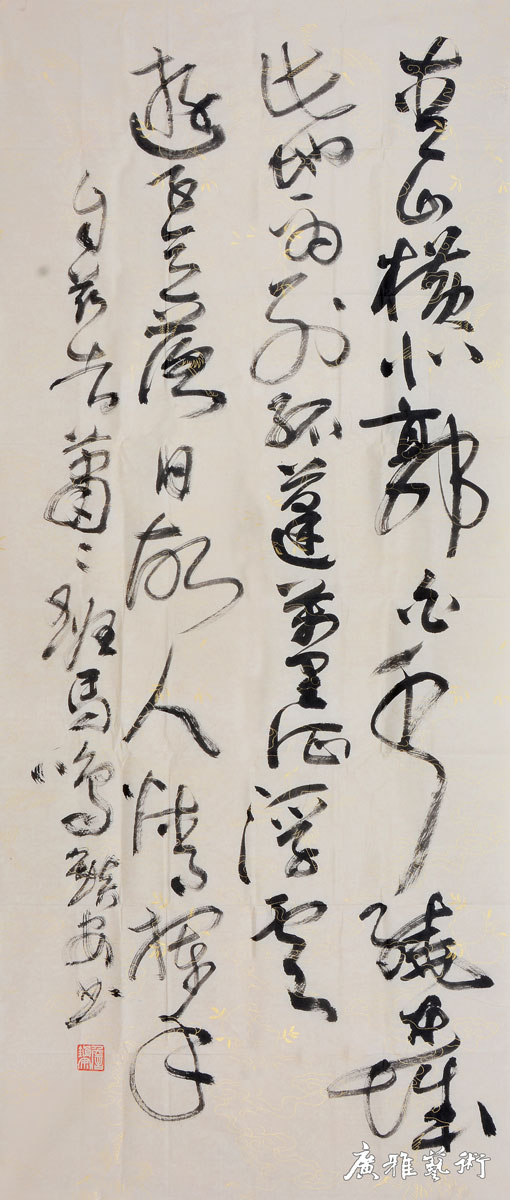 青山橫北郭白水繞東城
此地一為別孤蓬萬里征浮雲
遊子意落日故人情揮手
自茲去蕭〻班馬鳴 書
廣雅藝術